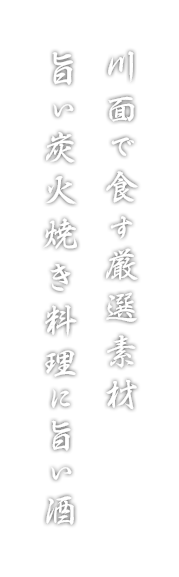 川面で食す厳選素材
旨い炭火焼き料理に旨い酒